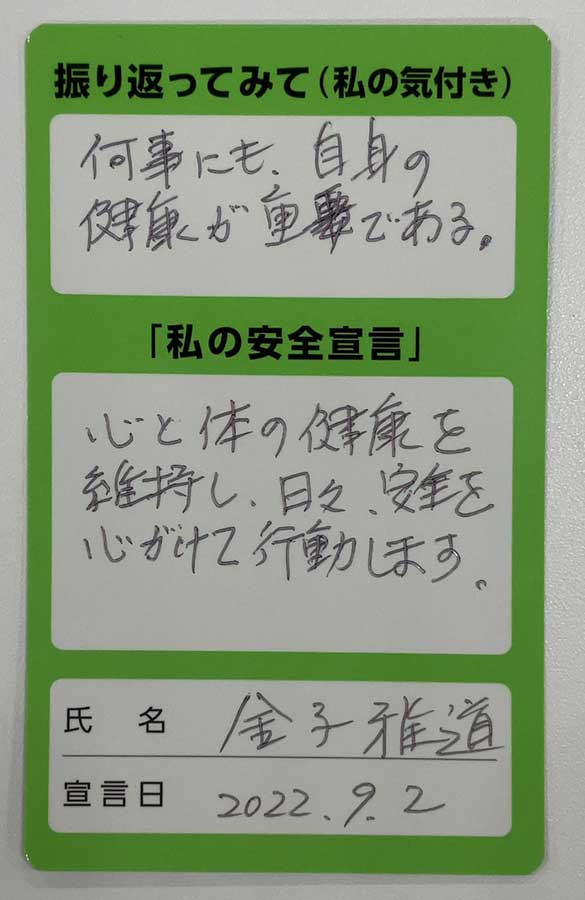 振り返ってみて（私の気付き）
何事にも、自身の
健康が重要である。
「私の安全宣言」
心と体の健康を
維持し、日々、安全を
心がけて行動します。
氏 名 金子雅道
宣言日 2022.9.2